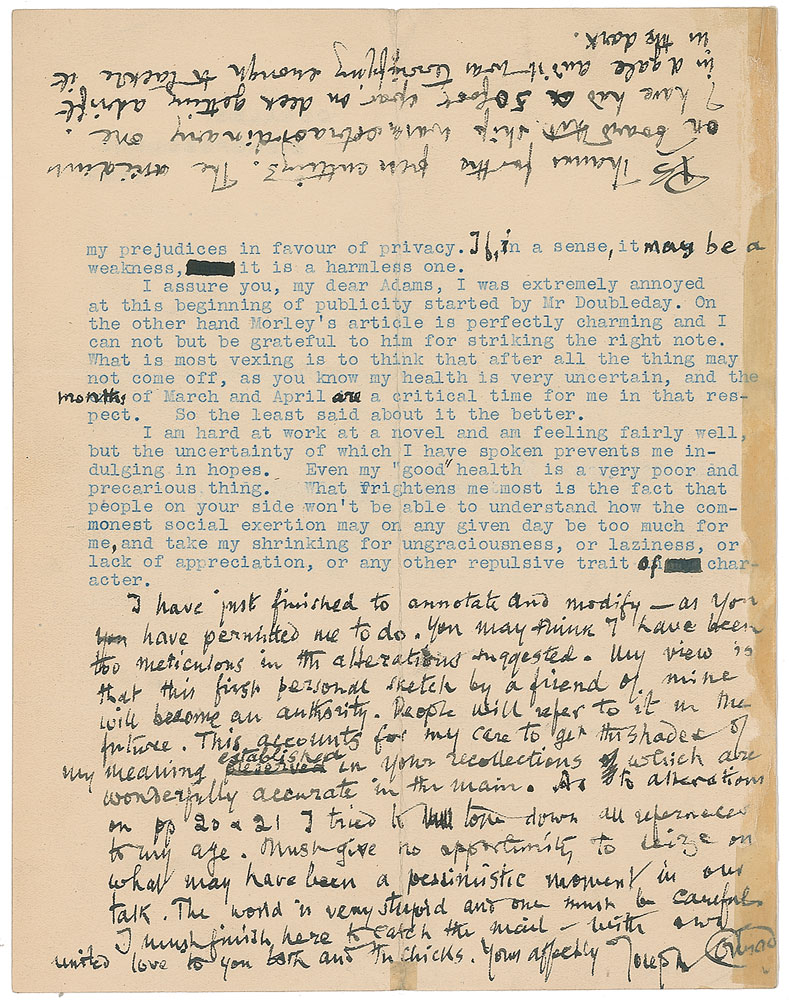 my prejudices in favour of privacy. If, in a sense, it may be a
weakness, it is a harmless one.
I assure you, my dear Adams, I was extremely annoyed
at this beginning of publicity started by Mr Doubleday. On
the other hand Morley's article is perfectly charming and I
can not but be grateful to him for striking the right note.
What is most vexing is to think that after all the thing may
not come off, as you know my health is very uncertain, and the
months of March and April are a critical time for me in that res-
pect. So the least said about it the better.
I am hard at work at a novel and am feeling fairly well,
but the uncertainty of which I have spoken prevents me in-
dulging in hopes. Even my "good" health is a very poor and
precarious thing. What frightens me most is the fact that
people on your side won't be able to understand how the com-
monest social exertion may on any given day be too much for
me, and take my shrinking for ungraciousness, or laziness, or
lack of appreciation, or any other repulsive trait of char-
acter.
I have just finished to annotate and modify – as you
you have permitted me to do. You may think I have been
too meticulous in the alterations suggested. My view is
that this first personal sketch by a friend of mine
will become an authority. People will refer to it in the
future. This accounts for my care to get the shades of
my meaning established in your recollections which are
wonderfully accurate in the main. As to alterations
on pp 20 & 21 I tried to tone down all references
to my age. Must give no opportunity to seize on
what may have been a pessimistic moment in our
talk. The world is very stupid and one must be careful.
I must finish here to catch the mail – with our
united love to you both and the chicks. Yours affectly Joseph Conrad
PS Thanks for the press cutting. The accident
on board ship was extraordinary one.
I have had a 50 foot spar on deck getting adrift
in a gale and it was terrifying enough to tackle it
in the dark.